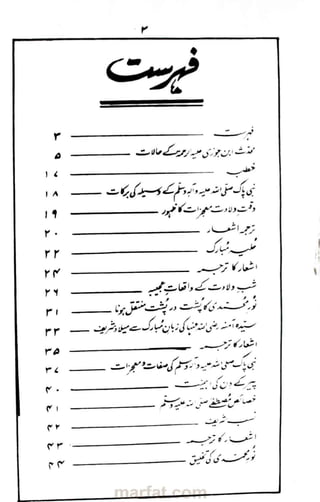 ۳
فہرست
فہرست ۳
محدث ابن جوزی علیہ الرحمۃ کے حالات ۵
خطبہ ۱۷
نبی پاک صلی اللہ علیہ وآلہ وسلم کے وسیلہ کی برکات ۱۸
وقت ولادت معجزات کا ظہور ۱۹
ترجمہ اشعار ۲۰
حلیہ مبارک ۲۲
اشعار کا ترجمہ ۲۴
شب ولادت کے واقعات عجیبہ ۲۶
نور محمدی کا پشت در پشت منتقل ہونا ۳۱
سیدہ آمنہ رضی اللہ عنہا کی زبان مبارک سے میلاد شریف ۳۳
اشعار کا ترجمہ ۳۵
نبی پاک صلی اللہ علیہ وآلہ وسلم کی صفات و معجزات ۳۷
پیر کے دن کی اہمیت ۴۰
خصائص مصطفےٰ صلی اللہ علیہ وسلم ۴۱
نسب شریف ۴۲
اشعار کا ترجمہ ۴۳
نور محمدی کی تخلیق ۴۴
marfat.com